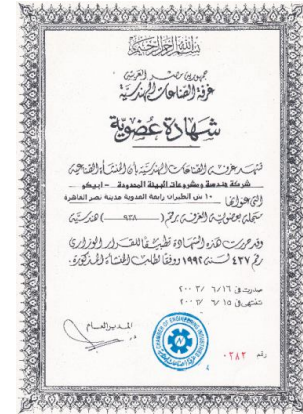 بسم الله الرحمن الرحيم
جمهورية مصر العربية
غرفة الصناعات الهندسية
شهادة عضوية
تشهد غرفة الصناعات الهندسية بأن المنشأة الصناعية
شركة هندسة ومشروعات البيئة المحدودة - ابيكو
التى عنوانها ١٠ ش الطيران رابعة العدوية مدينة نصر القاهرة
مسجلة بعضوية الغرفة برقم (٩٣٨) هندسية
وقد حررت هذه الشهادة تطبيقا للقرار الوزارى
رقم ٤٢٧ لسنة ١٩٩٢ ووفقا لطلب المنشأة المذكورة.
صدرت فى ٢٠٠٢/٦/١٦
تنتهى فى ٢٠٠٣/٦/١٥
المدير العام
CHAMBER OF ENGINEERING INDUSTRIES
رقم ٠٢٨٢